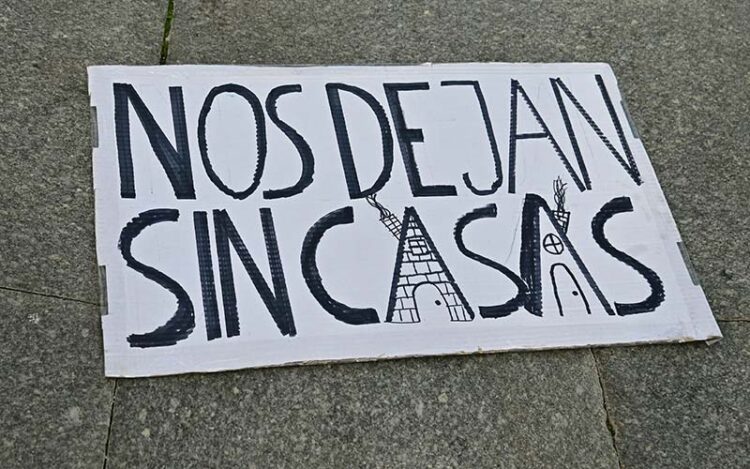 NOS DEJAN
SIN CASAS